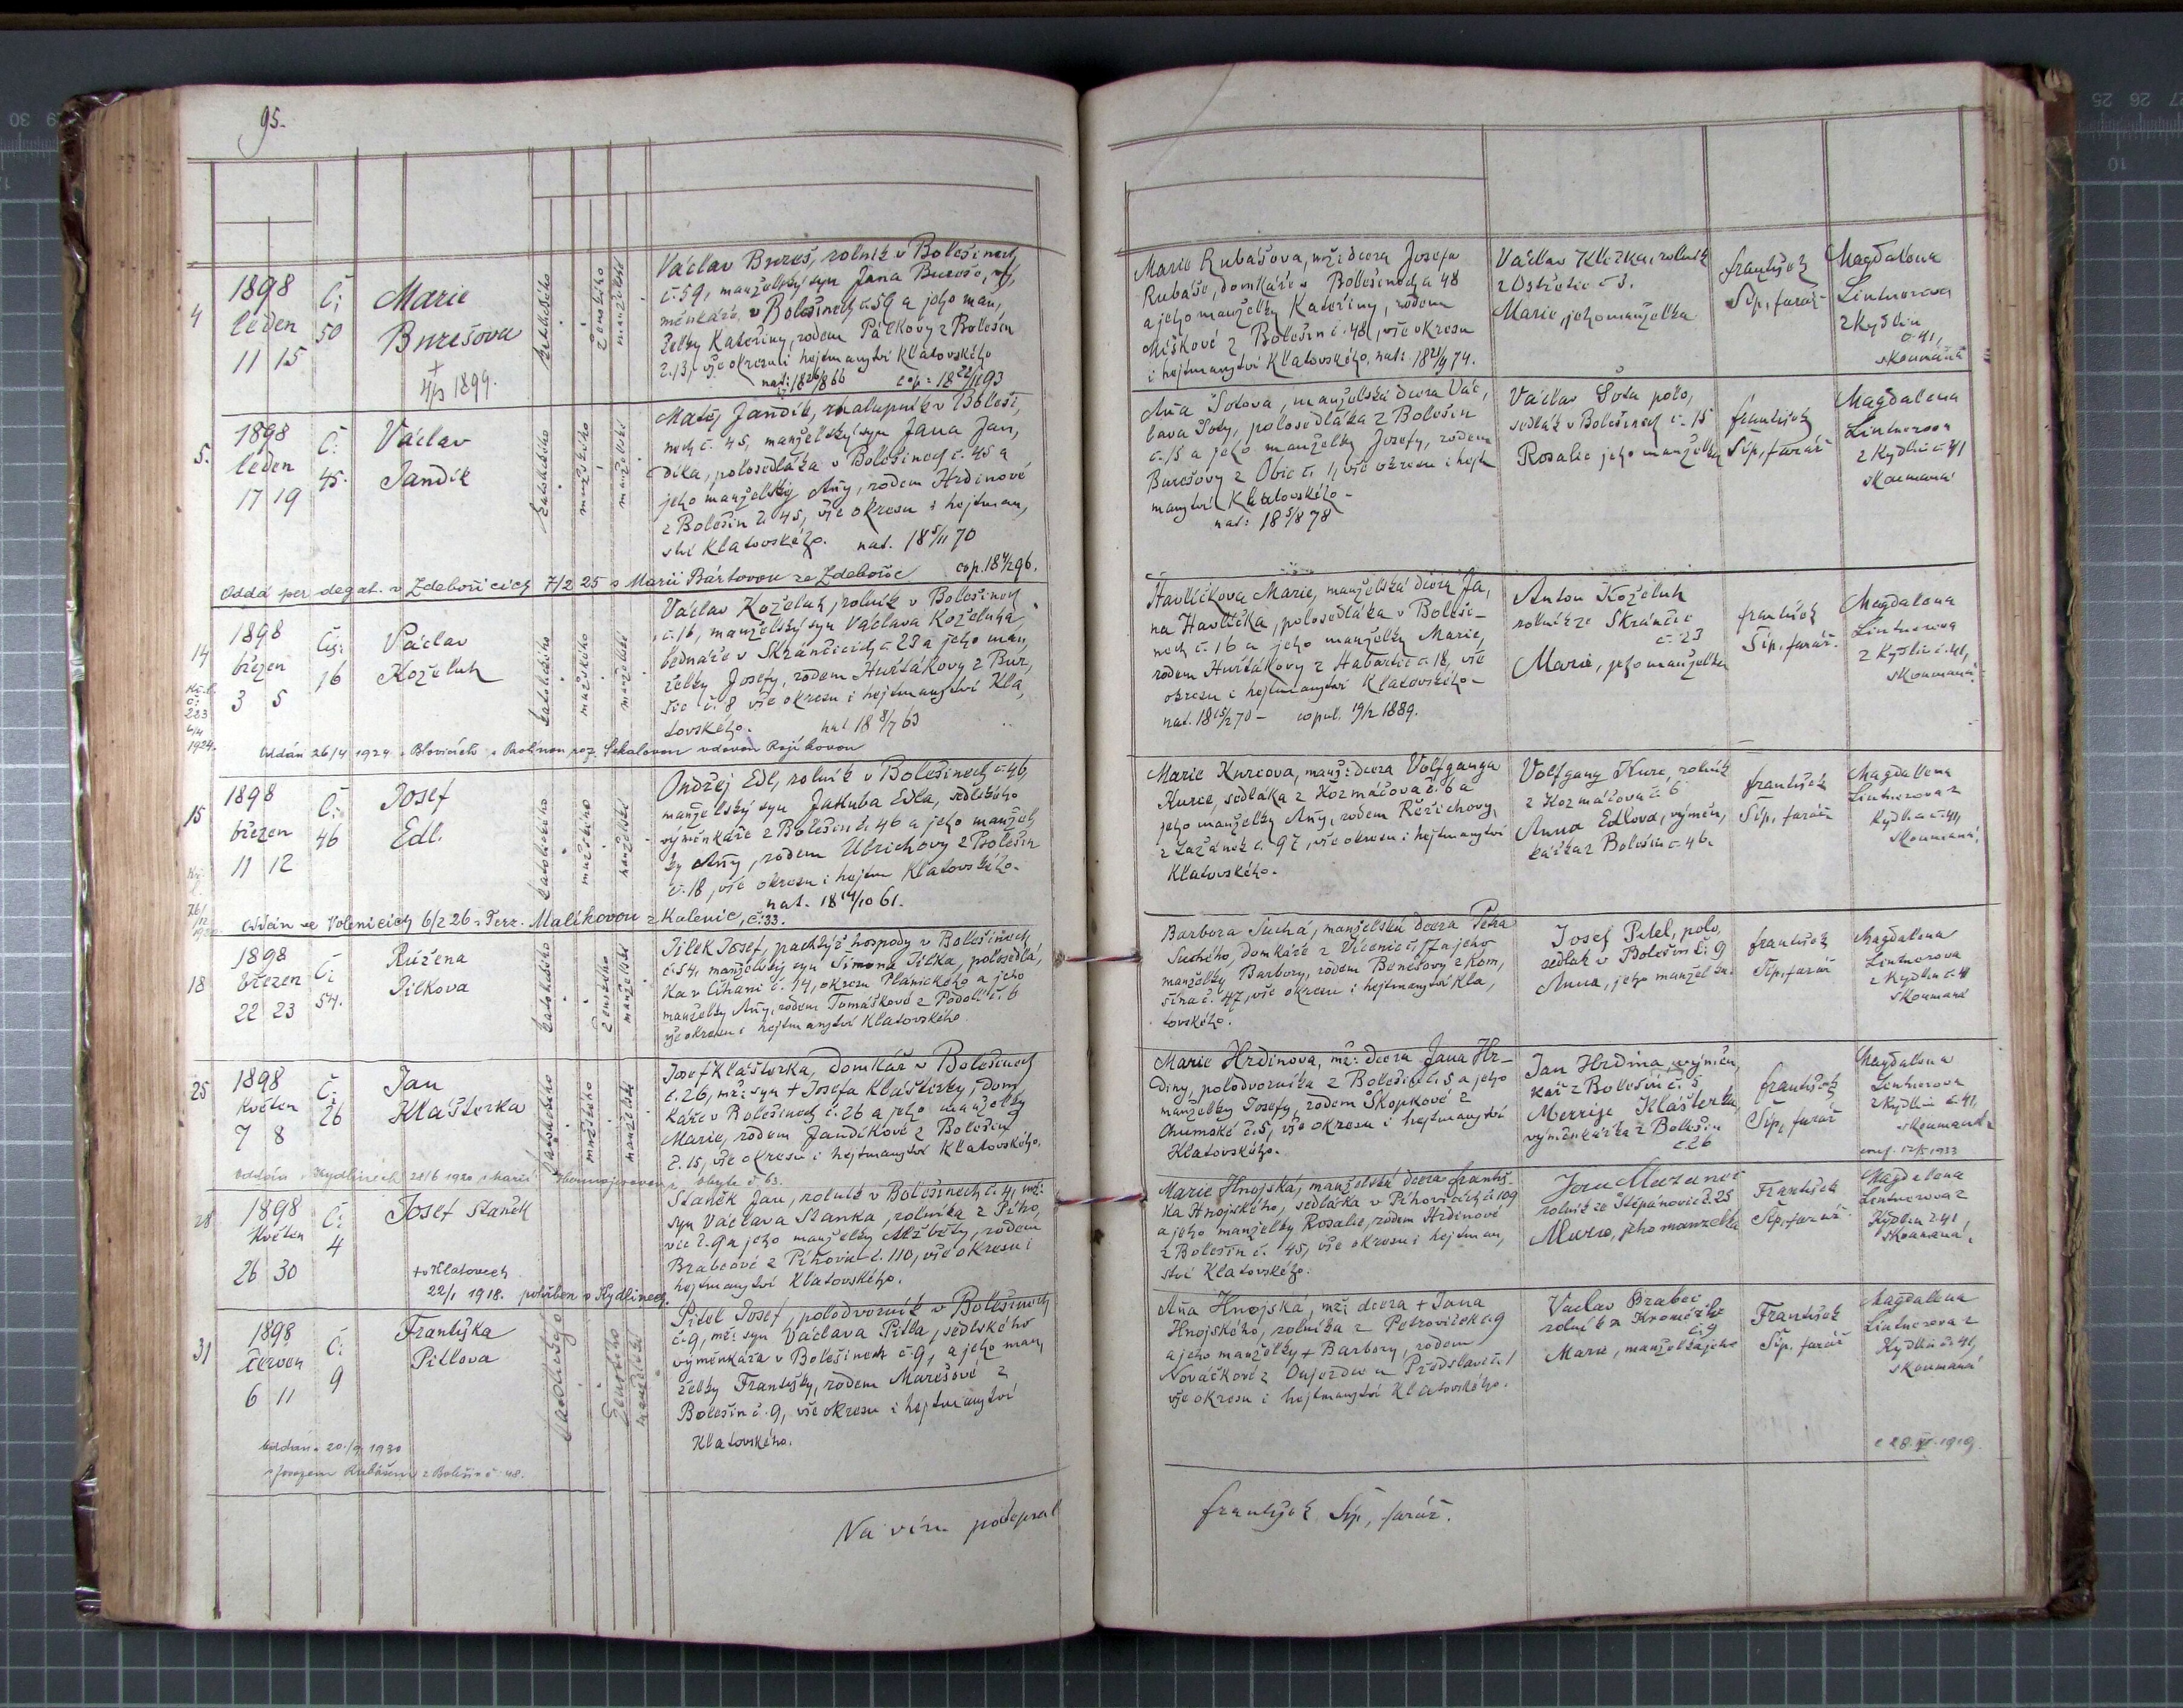 95.
4
1898
leden
11 15
Č:
50
Marie
Burešova
+
1899.
katolického
ženského
manželské
Václav Bureš, rolník v Bolešinech
č. 59, manželský syn Jana Bureše, vý,
měnkáře v Bolešinech č. 59 a jeho man,
želky Kateřiny, rodem Pálkovy z Bolešin
č. 13, vše okresu i hejtmanství Klatovského
Marie Rubášova, mž: dcera Josefa
Rubáše, domkáře v Bolešinech č. 48
a jeho manželky Kateřiny, rodem
Miškové z Bolešin č. 48, vše okresu
i hejtmanství Klatovského. nat: 18 74.
Václav Klička, rolník
z Ostřetic č. 3.
Marie, jeho manželka
František
Šíp, farář
Magdalena
Lintnerova
z Kydlin
č. 41,
skoumaná
5.
1898
leden
17 19
Č:
45.
Václav
Jandík
katolického
mužského
manželské
Matěj Jandík, chalupník v Boleši,
nech č. 45, manželský syn Jana Jan,
díka, polosedláka v Bolešinech č. 45 a
jeho manželky Anny, rodem Hrdinové
z Bolešin č. 45, vše okresu i hejtman,
ství Klatovského. nat. 18 5/11 70
cop. 18 96.
Oddá per delegat. v Zdebořicích 7/2 25 s Marií Bártovou ze Zdebořic
Anna Šotova, manželská dcera Vác,
lava Šoty, polosedláka z Bolešin
č. 15 a jeho manželky Josefy, rodem
Burešovy z Obic č. 1, vše okresu i hejt
manství Klatovského -
nat: 18 5/8 78
Václav Šota polo,
sedlák v Bolešinech č. 15
Rosalie jeho manželka
František
Šíp, farář
Magdalena
Lintnerova
z Kydlin č. 41
skoumaná
14
1924.
1898
březen
3 5
Čís:
16
Václav
Koželuh
katolického
mužského
manželské
Václav Koželuh, rolník v Bolešinech
č. 16, manželský syn Václava Koželuha,
bednáře v Skránčicích č. 23 a jeho man,
želky Josefy, rodem Huršákovy z Buš,
šic č. 8 vše okresu i hejtmanství Kla,
tovského. nat 18 8/7 63
Oddán 26/4 1924 v Blovicích s
Havlíčkova Marie, manželská dcera Ja,
na Havlíčka, polosedláka v Boleši-
nech č. 16 a jeho manželky Marie,
rodem Huršákovy z Habartic č. 18, vše
okresu i hejtmanství Klatovského -
nat. 18 15/2 70 - copul. 19/2 1889.
Anton Koželuh
rolník ze Skránčic
č. 23
Marie, jeho manželka
František
Šíp, farář.
Magdalena
Lintnerova
z Kydlin č. 41,
skoumaná.
15
1898
březen
11 12
Č:
46
Josef
Edl.
katolického
mužského
manželské
Ondřej Edl, rolník v Bolešinech č. 46,
manželský syn Jakuba Edla, sedlského
výměnkáře z Bolešin č. 46 a jeho manžel
ky Anny, rodem Ulrichovy z Bolešin
č. 18, vše okresu i hejtm Klatovského.
nat. 18 14/10 61.
Oddán ve Volenicích 6/2 26 s Terr. Malíkovou z Kalenic, č. 33.
Marie Kurcova, manž: dcera Volfganga
Kurce, sedláka z Kozmáčova č. 6 a
jeho manželky Anny, rodem Řežichovy
z Lažánek č. 97, vše okresu i hejtmanství
Klatovského.
Volfgang Kurc, rolník
z Kozmáčova č. 6
Anna Edlova, výměn,
kářka z Bolešin č. 46.
František
Šíp, farář
Magdalena
Lintnerova z
Kydlin č. 41,
skoumaná.
18
1898
Březen
22 23
Č:
54.
Růžena
Pilkova
katolického
ženského
manželské
Pilek Josef, pachtýř hospody v Bolešinech
č. 54, manželský syn Šimona Pilka, polosedlá,
ka v Číhani č. 14, okresu Plánického a jeho
manželky Anny, rodem Tomáškové z Podolí č. 6
vše okresu i hejtmanství Klatovského
Barbora Suchá, manželská dcera Petra
Suchého, domkáře z Vícenic č. 17 a jeho
manželky Barbory, rodem Benešovy z Kom,
šína č. 47, vše okresu i hejtmanství Kla,
tovského.
Josef Pitel, polo,
sedlák v Bolešin č. 9
Anna, jeho manželka.
František
Šíp, farář
Magdalena
Lintnerova
z Kydlin č. 41
skoumaná
25
1898
Květen
7 8
Č:
26
Jan
Klášterka
katolického
mužského
manželské
Josef Klášterka, domkář v Bolešinech
č. 26, mž: syn + Josefa Klášterky, dom,
káře v Bolešinech č. 26 a jeho manželky
Marie, rodem Jandíkové z Bolešin
č. 15, vše okresu i hejtmanství Klatovského.
Oddán v Kydlinech 28/6 1920 s Marií č. 63.
Marie Hrdinova, mž: dcera Jana Hr-
diny, polodvorníka z Bolešin č. 5 a jeho
manželky Josefy, rodem Škopkové z
Chumské č. 5, vše okresu i hejtmanství
Klatovského.
Jan Hrdina, výměn,
kář z Bolešin č. 5
Merrye Klášterka
výměnkářka z Bolešin
č. 26
František
Šíp, farář
Magdalena
Lintnerova
z Kydlin č. 41,
skoumaná
28
1898
Květen
26 30
Č:
4
Josef Staněk
+ v Klatovech
22/1 1918. pohřben v Kydlinech.
Staněk Jan, rolník v Bolešinech č. 4, mž:
syn Václava Staňka, rolníka z Pího,
vic č. 9 a jeho manželky Alžběty, rodem
Brabcové z Píhovic č. 110, vše okresu i
hejtmanství Klatovského.
Marie Hnojská, manželská dcera Františ-
ka Hnojského, sedláka v Píhovicích č. 109
a jeho manželky Rosalie, rodem Hrdinové
z Bolešin č. 45, vše okresu i hejtman,
ství Klatovského.
Jan Mazanec
rolník ze Štěpánovic č. 25
Marie, jeho manželka
František
Šíp, farář.
Magdalena
Lintnerova z
Kydlin č. 41,
skoumaná.
31
1898
Červen
6 11
Č:
9
Františka
Pitlova
katolického
ženského
manželské
Pitel Josef, polodvorník v Bolešinech
č. 9, mž: syn Václava Pitla, sedlského
výměnkáře v Bolešinech č. 9, a jeho man,
želky Františky, rodem Marešové z
Bolešin č. 9, vše okresu i hejtmanství
Klatovského.
Oddána 20./9. 1930
s Josefem Rubášem z Bolešin č. 48.
Anna Hnojská, mž: dcera + Jana
Hnojského, rolníka z Petroviček č. 9
a jeho manželky + Barbory, rodem
Nováčkové z Oujezdu u Předslavi č. 1
vše okresu i hejtmanství Klatovského.
Václav Brabec
rolník z
č. 9
Marie, manželka jeho
František
Šíp, farář
Magdalena
Lintnerova z
Kydlin č. 41,
skoumaná
Na víru podepsal
František Šíp, farář.